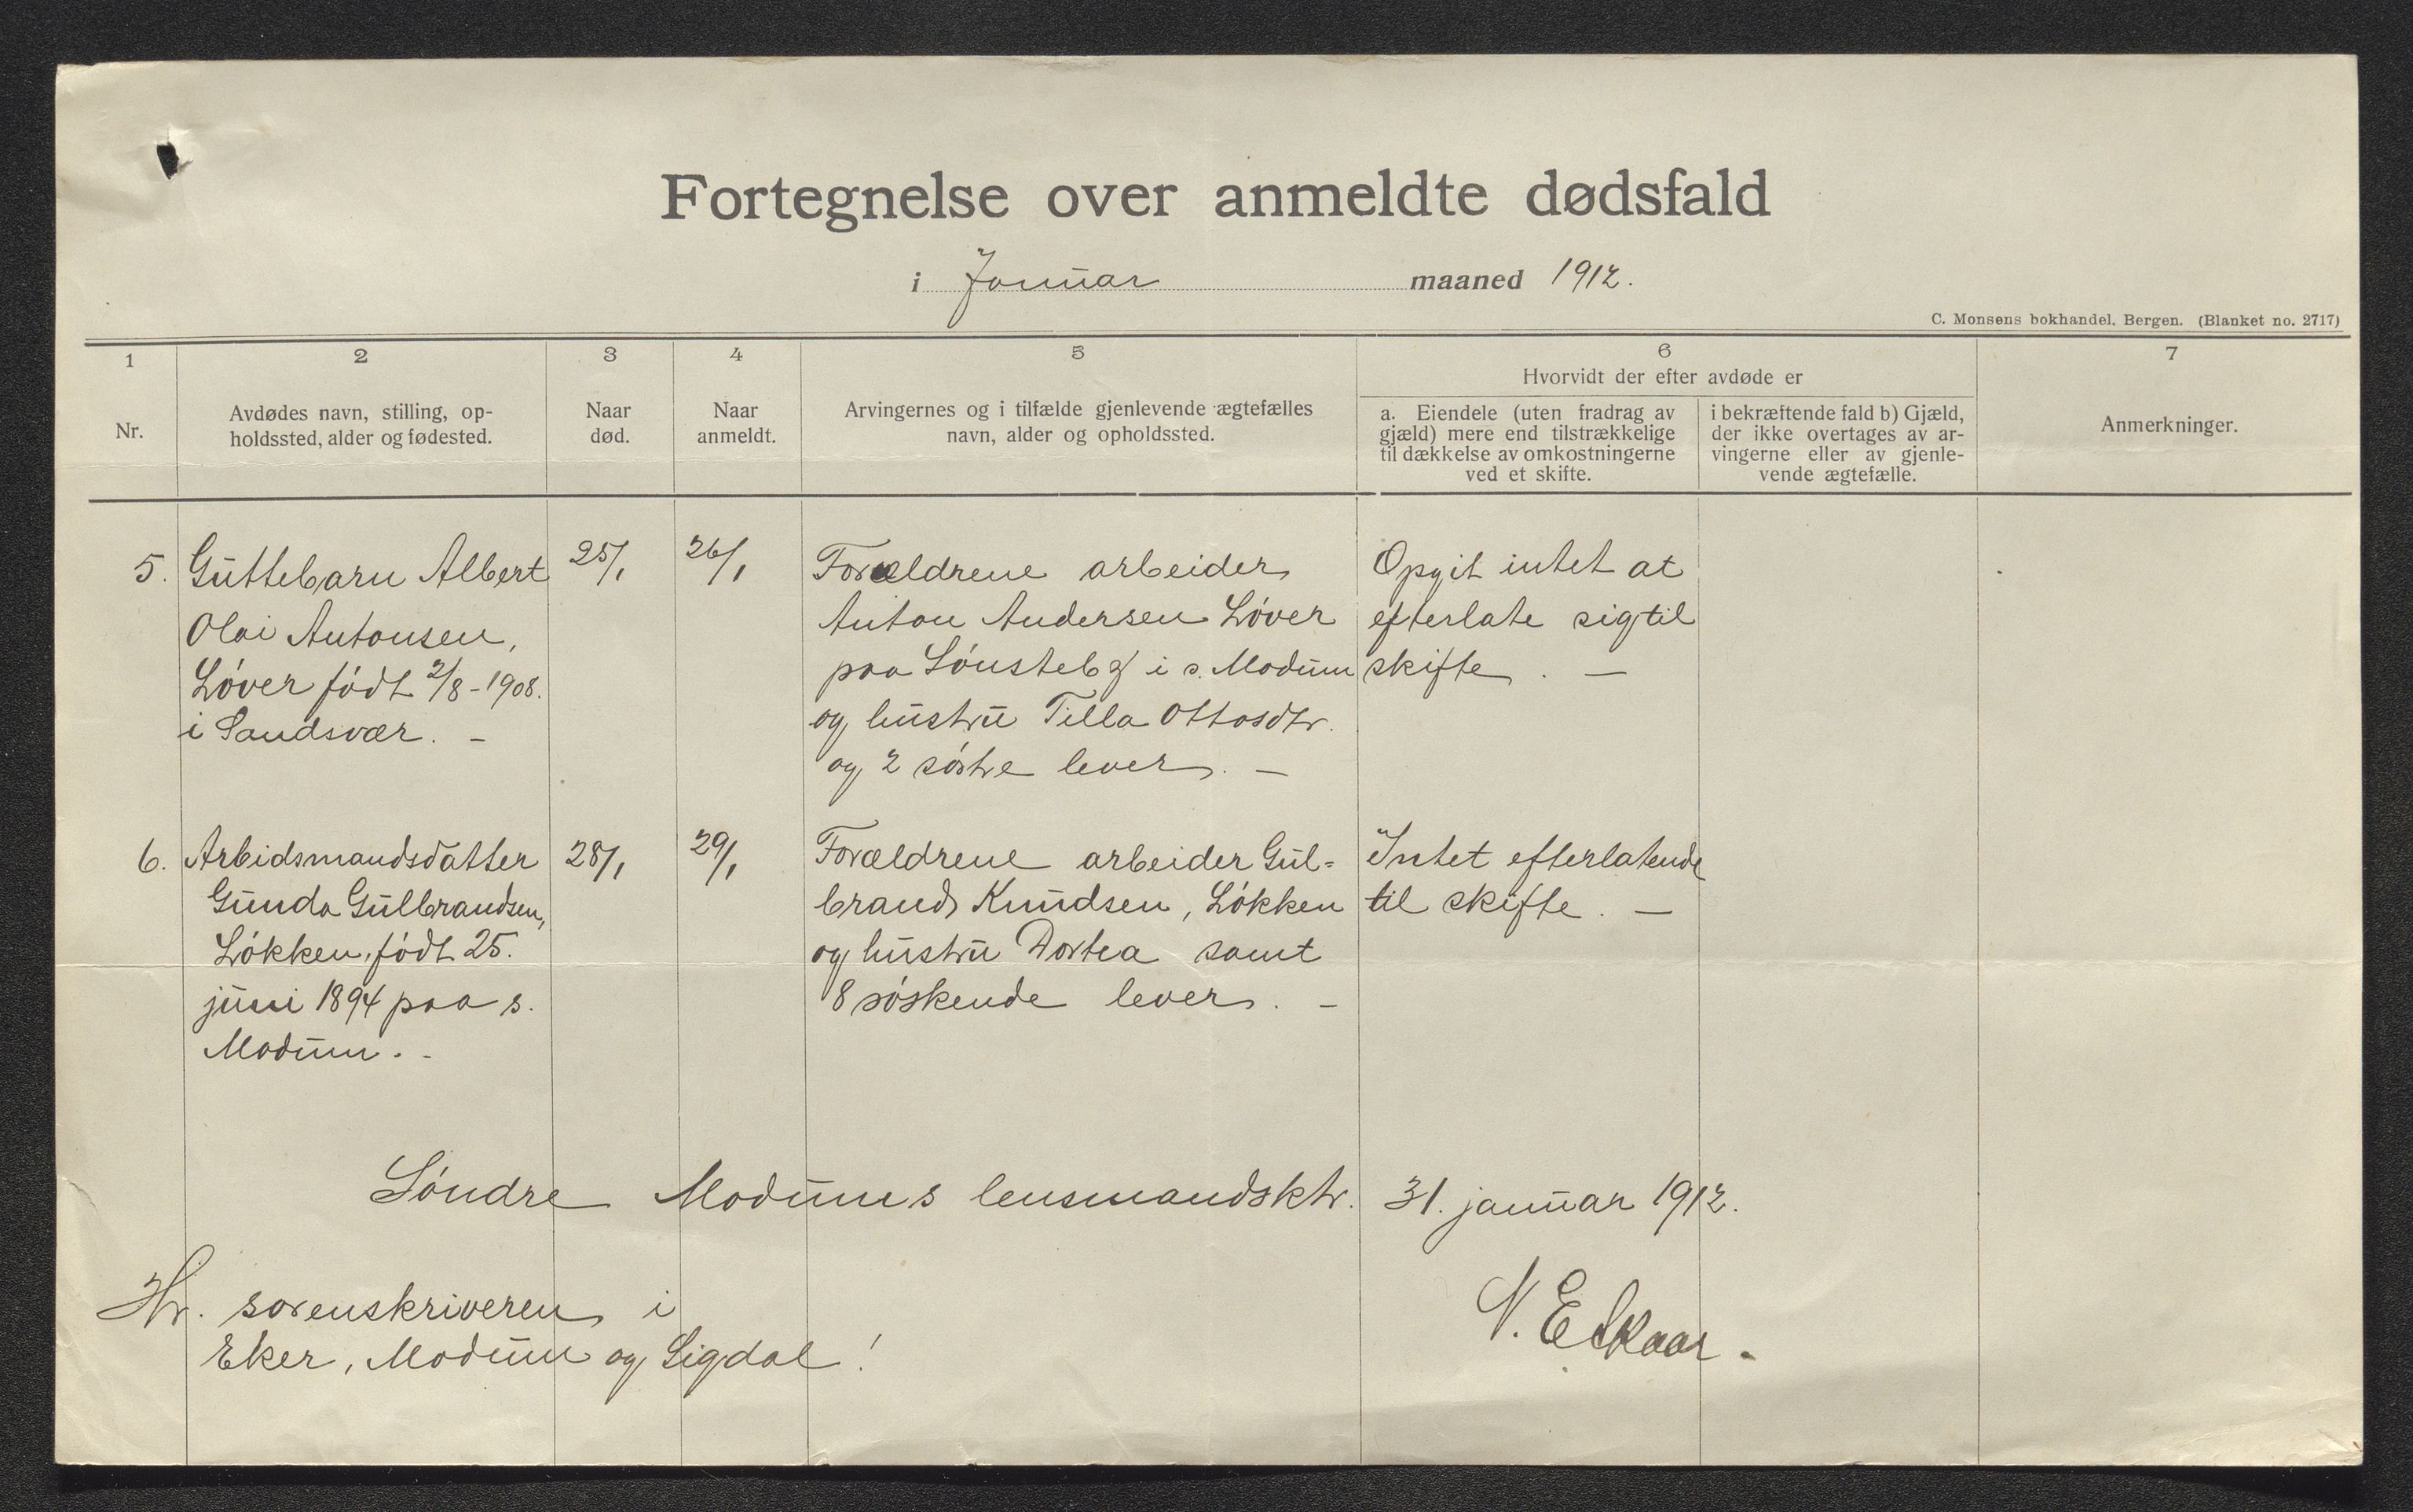 Fortegnelse over anmeldte dødsfald
i Januar maaned 1912.
C. Monsens bokhandel, Bergen. (Blanket no. 2717)
1
2
3
4
5
6
7
Nr.
Avdødes navn, stilling, op-
holdssted, alder og fødested.
Naar
død.
Naar
anmeldt.
Arvingernes og i tilfælde gjenlevende ægtefælles
navn, alder og opholdssted.
Hvorvidt der efter avdøde er
a. Eiendele (uten fradrag av
gjæld) mere end tilstrækkelige
til dækkelse av omkostningerne
ved et skifte.
i bekræftende fald b) Gjæld,
der ikke overtages av ar-
vingerne eller av gjenle-
vende ægtefælle.
Anmerkninger.
5.
Guttebarn Albert
Olai Antonsen,
Løver født 2/8-1908.
i Sandsvær. -
25/1
26/1
Forældrene arbeider
Anton Andersen Løver
paa Lønsteby i s. Modum
og hustru Tilla Ottosdtr.
og 2 søstre lever. -
Opgit intet at
efterlate sig til
skifte. -
6.
Arbidsmandsdatter
Gunda Gulbrandsen,
Løkken, født 25.
juni 1894 paa s.
Modum. -
28/1
29/1
Forældrene arbeider Gul=
brand Knudsen, Løkken
og hustru Dortea samt
8 søskende lever. -
Intet efterlatende
til skifte. -
Søndre Modums lensmandsktr. 31. januar 1912.
Hr. sorenskriveren i
Eker, Modum og Sigdal!
N. E